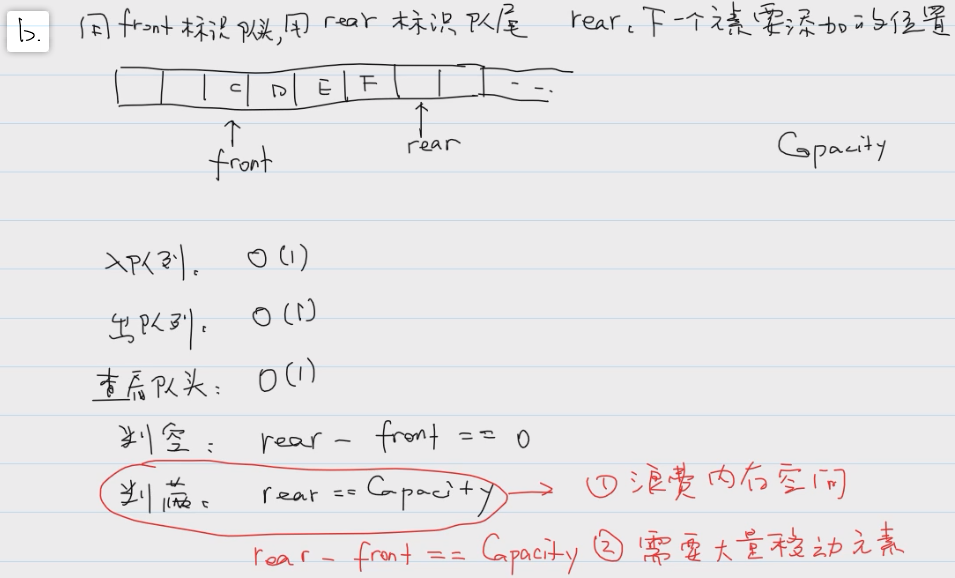 b. 用front标识队头,用rear标识队尾 rear:下一个元素要添加的位置
C D E F ...
front rear Capacity
入队列: O(1)
出队列: O(1)
查看队头: O(1)
判空: rear - front == 0
判满: rear == Capacity → ① 浪费内存空间
rear - front == Capacity ② 需要大量移动元素